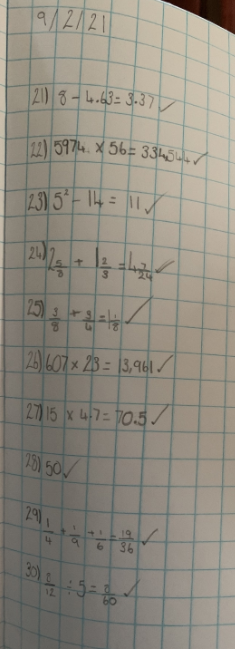 9/2/21
21) 8 - 4.63 = 3.37 ✓
22) 5974 × 56 = 334544 ✓
23) 5² - 14 = 11 ✓
24) 2 5/8 + 1 2/3 = 4 7/24 ✓
25) 3/8 + 3/4 = 1 1/8 ✓
26) 607 × 23 = 13,961 ✓
27) 15 × 4.7 = 70.5 ✓
28) 50 ✓
29) 1/4 + 1/9 + 1/6 = 19/36 ✓
30) 8/12 ÷ 5 = 8/60 ✓